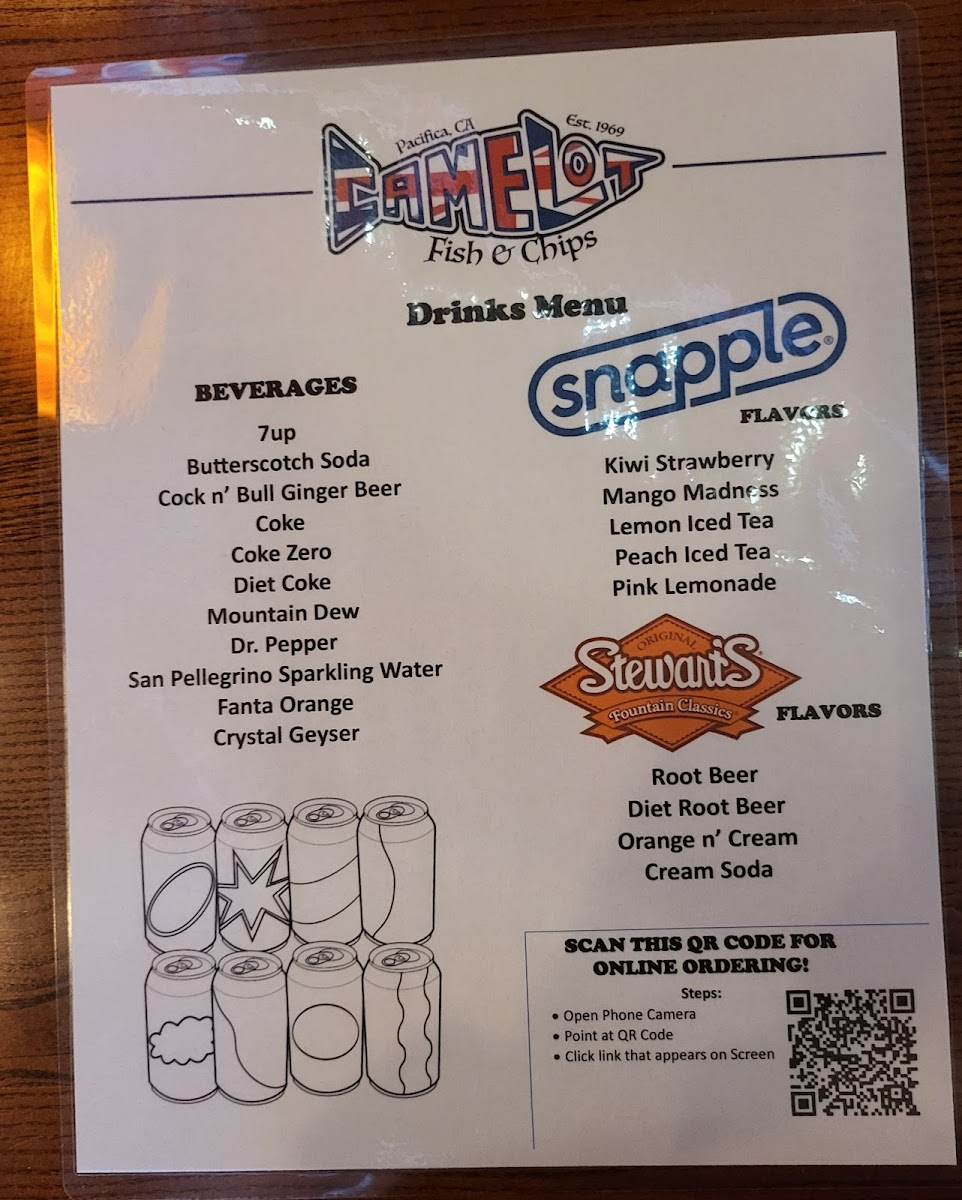 Pacifica, CA
Est. 1969
CAMELOT
Fish & Chips
Drinks Menu
BEVERAGES
7up
Butterscotch Soda
Cock n' Bull Ginger Beer
Coke
Coke Zero
Diet Coke
Mountain Dew
Dr. Pepper
San Pellegrino Sparkling Water
Fanta Orange
Crystal Geyser
snapple®
FLAVORS
Kiwi Strawberry
Mango Madness
Lemon Iced Tea
Peach Iced Tea
Pink Lemonade
ORIGINAL
Stewart's
Fountain Classics
FLAVORS
Root Beer
Diet Root Beer
Orange n' Cream
Cream Soda
SCAN THIS QR CODE FOR
ONLINE ORDERING!
Steps:
• Open Phone Camera
• Point at QR Code
• Click link that appears on Screen